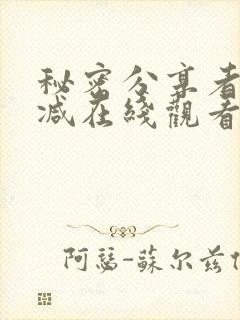 秘密分享者
减在綫觀看
阿瑟-蘇尔兹